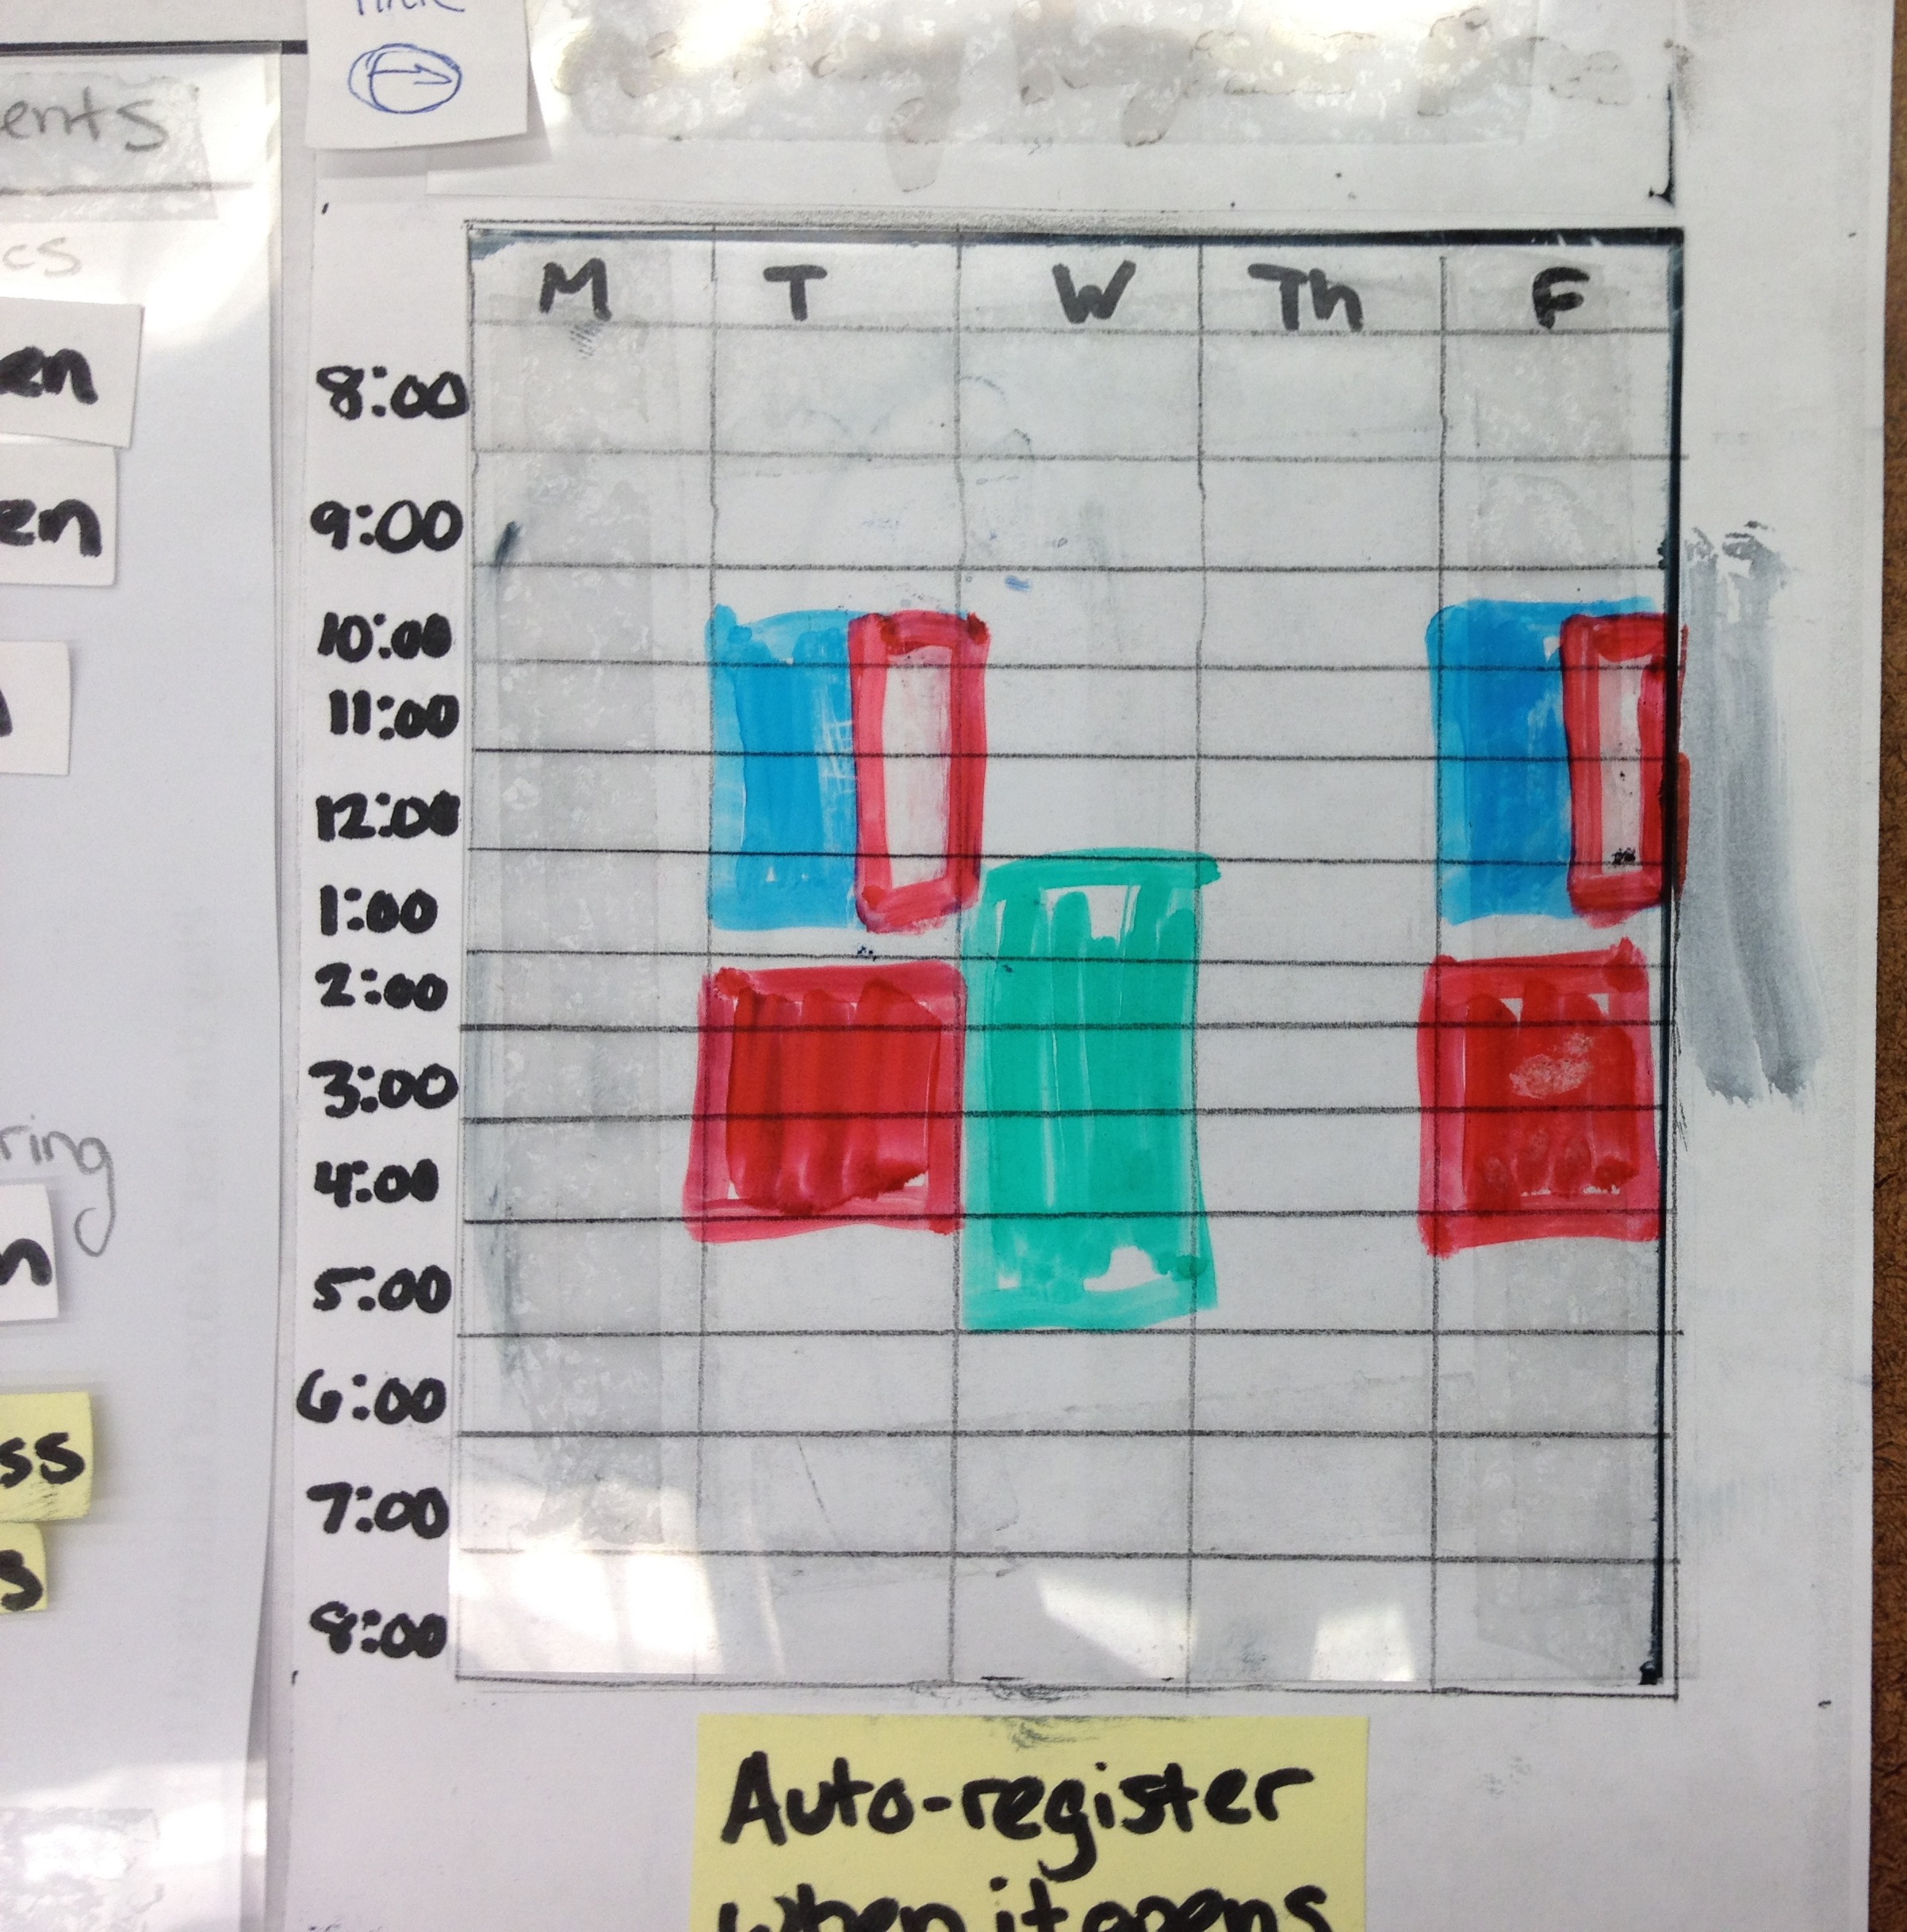 ents
cs
en
en
ring
n
ss
s
M T W Th F
8:00
9:00
10:00
11:00
12:00
1:00
2:00
3:00
4:00
5:00
6:00
7:00
8:00
Auto-register
when it opens